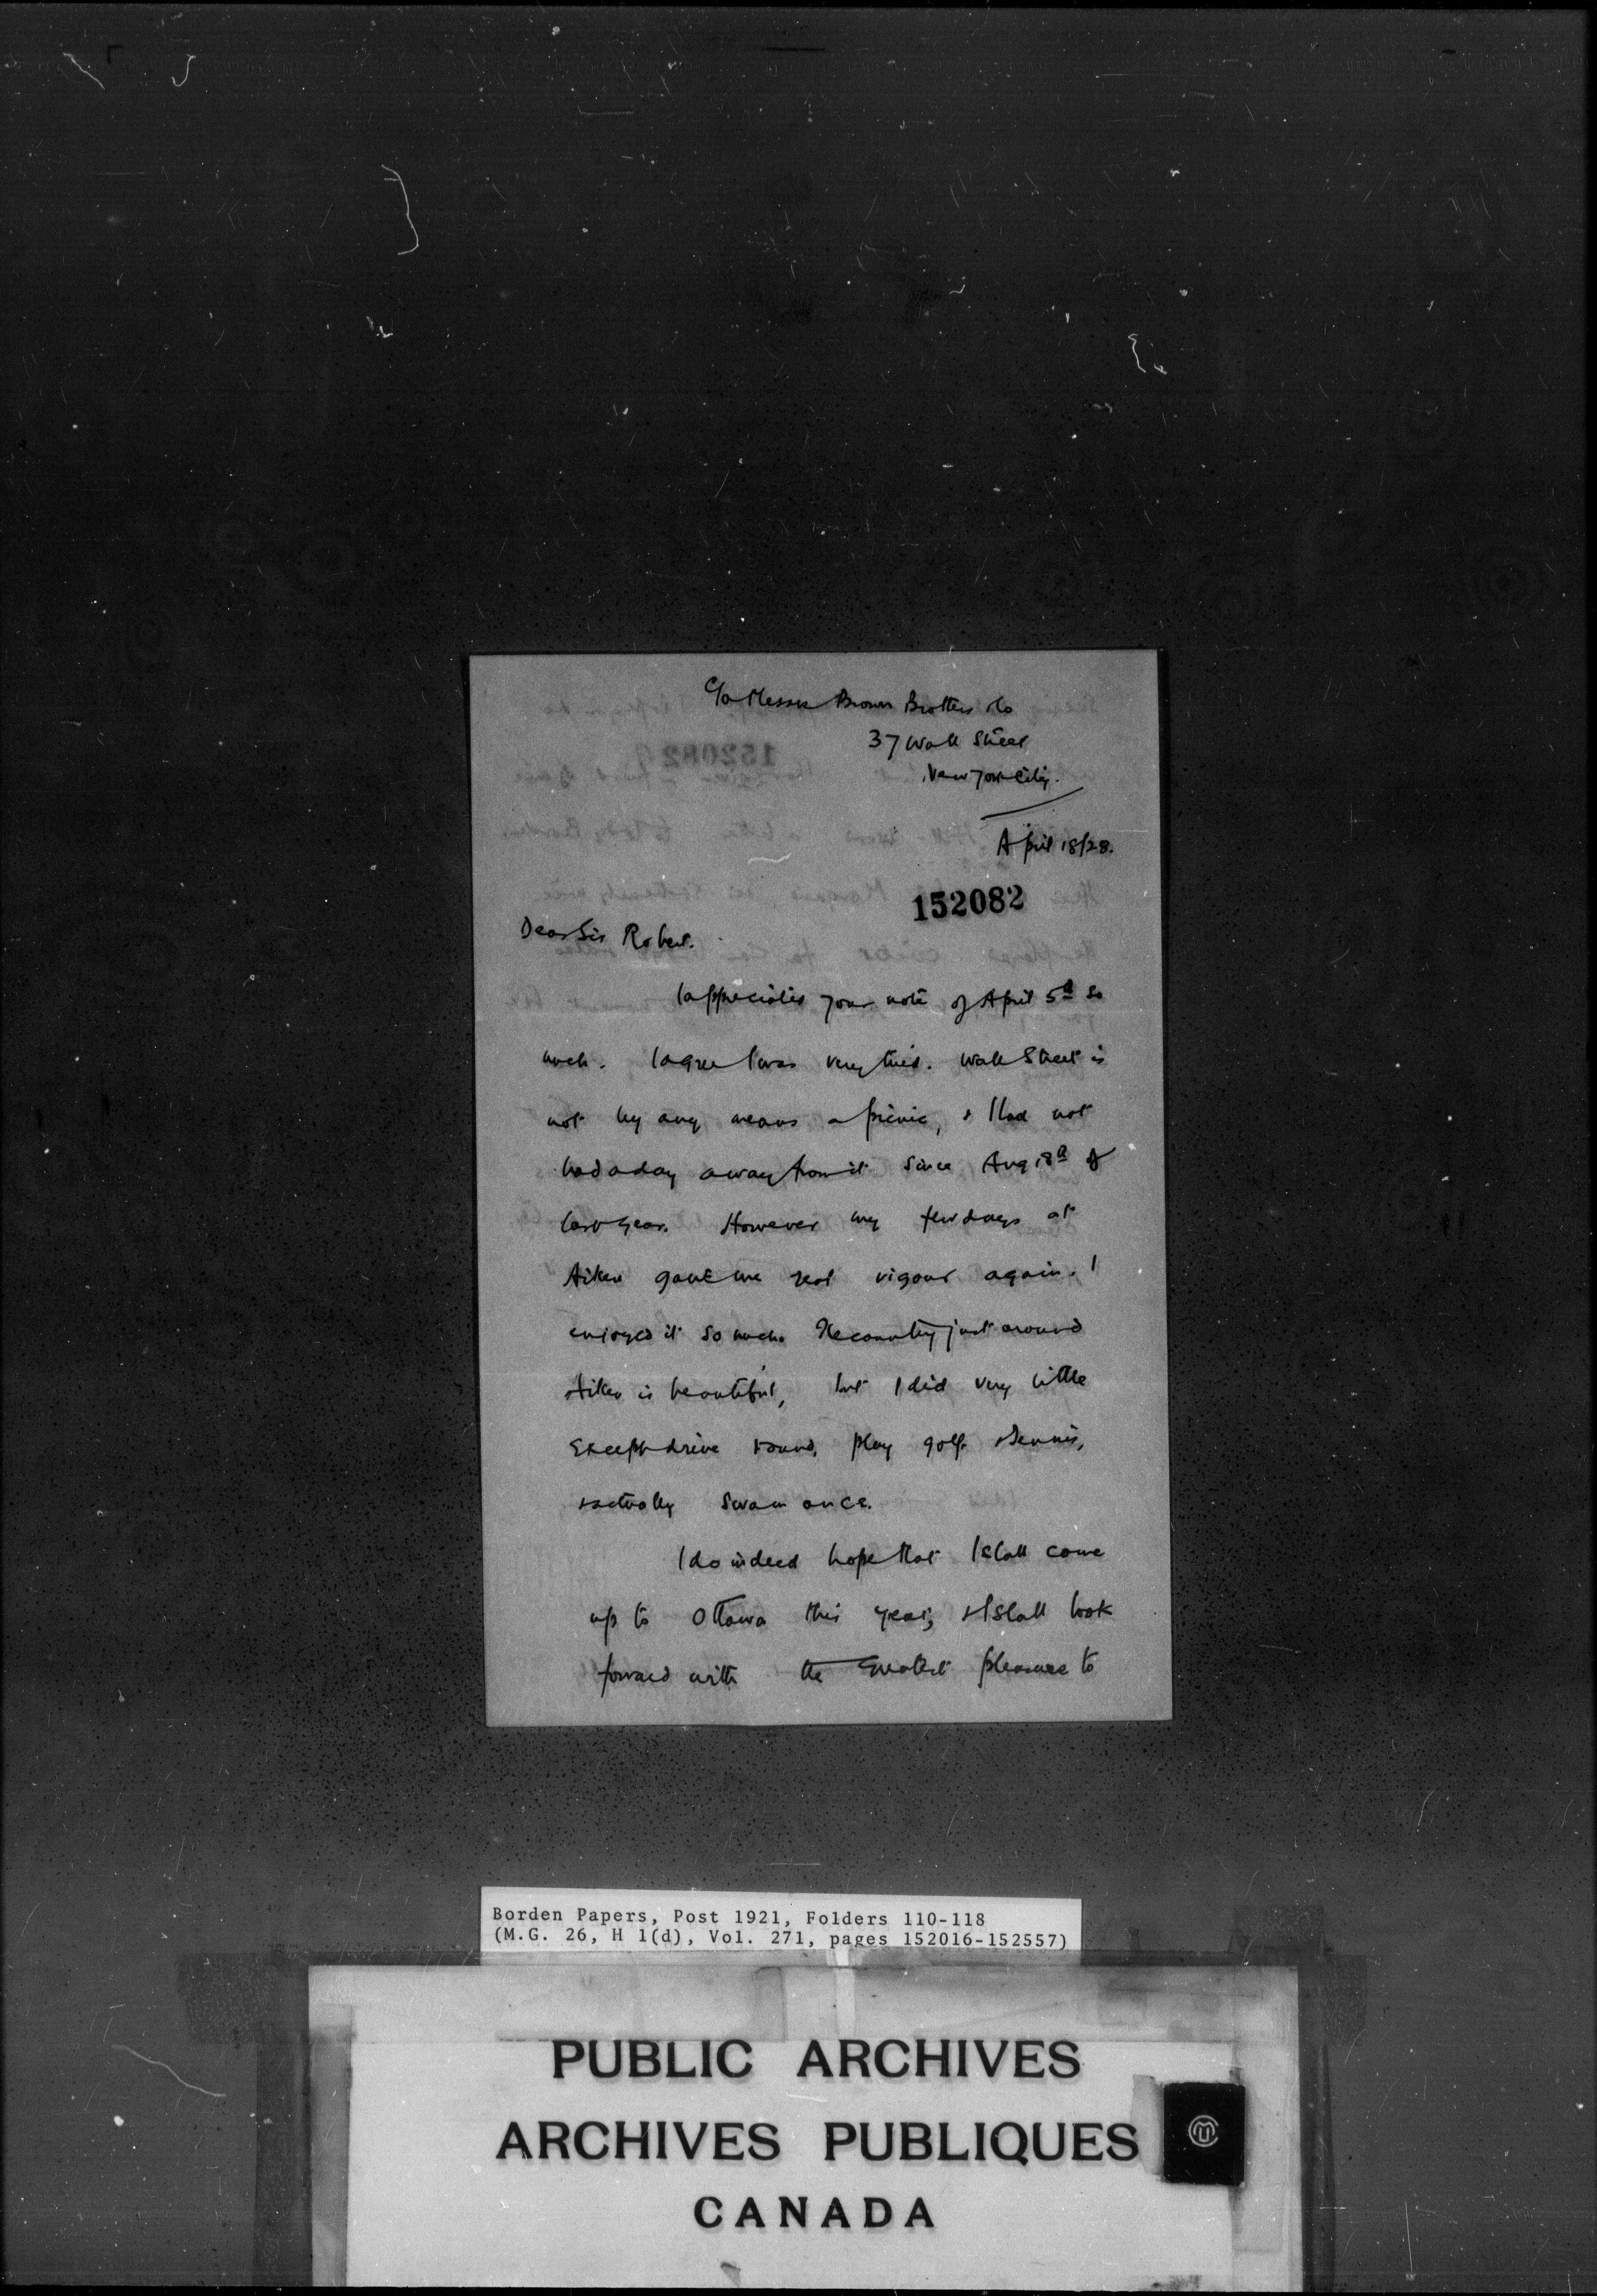 c/o Messrs Brown Brothers & Co
37 Wall Street
New York City.
April 18/28.
152082
Dear Sir Robert.
I appreciated your note of April 5th so
much. I agree I was very tired. Wall Street is
not by any means a picnic, & I had not
had a day away from it since Aug 18th of
last year. However my few days at
Aiken gave me real vigour again. I
enjoyed it so much. The country just around
Aiken is beautiful, but I did very little
except drive round, play golf & tennis,
& actually swam once.
I do indeed hope that I shall come
up to Ottawa this year, & I shall look
forward with the greatest pleasure to
Borden Papers, Post 1921, Folders 110-118
(M.G. 26, H 1(d), Vol. 271, pages 152016-152557)
PUBLIC ARCHIVES
ARCHIVES PUBLIQUES
CANADA